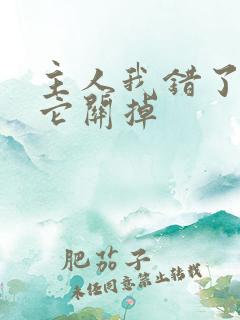 主人我错了
它關掉
肥茄子
未经同意禁止转载